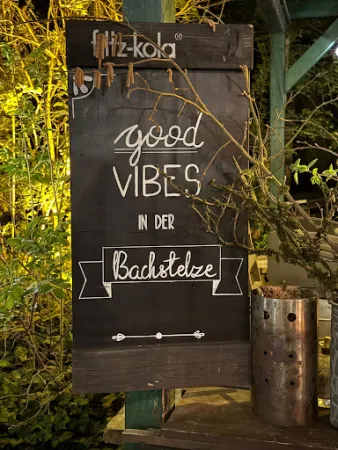 fritz-kola®
good
VIBES
IN DER
Bachstelze